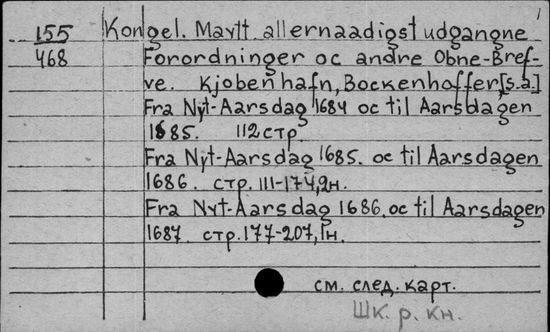 1
155 Kongel. Maytt. allernaadigst udgangne
468 Forordninger oc andre Obne-Bref-
ve. Kjobenhafn, Bockenhoffer [s.a.]
Fra Nyt-Aarsdag 1684 oc til Aarsdagen
1685. 112 стр.
Fra Nyt-Aarsdag 1685. oc til Aarsdagen
1686. стр. 111-174, 2н.
Fra Nyt-Aarsdag 1686. oc til Aarsdagen
1687. стр. 177-207, 1н.
см. след. карт.
Шк. р. кн.